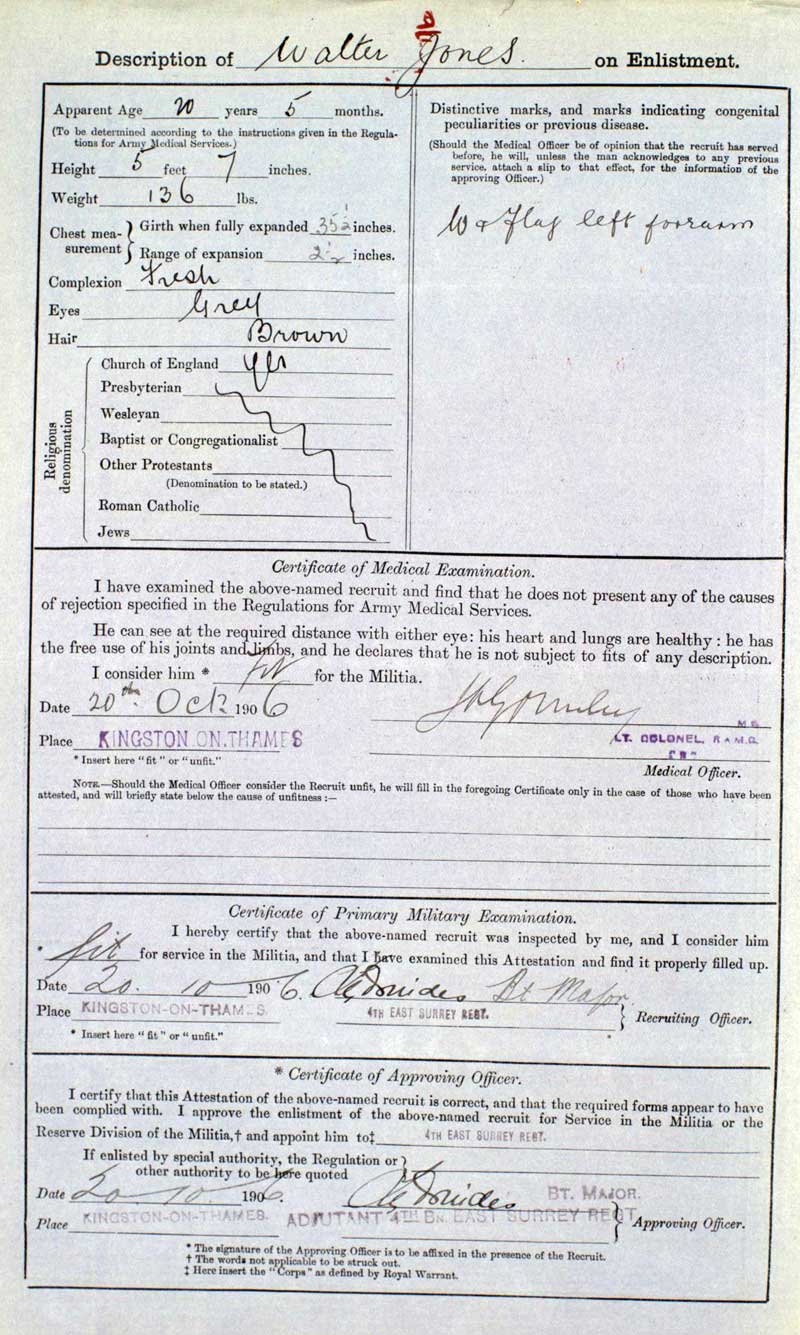 Description of Walter Jones. on Enlistment.
Apparent Age 20 years 5 months.
(To be determined according to the instructions given in the Regula-
tions for Army Medical Services.)
Height 5 feet 7 inches.
Weight 136 lbs.
Chest mea-
surement
Girth when fully expanded 35½ inches.
Range of expansion 2½ inches.
Complexion Fresh
Eyes Grey
Hair Brown
Religious
denomination
Church of England Yes
Presbyterian
Wesleyan
Baptist or Congregationalist
Other Protestants
(Denomination to be stated.)
Roman Catholic
Jews
Distinctive marks, and marks indicating congenital
peculiarities or previous disease.
(Should the Medical Officer be of opinion that the recruit has served
before, he will, unless the man acknowledges to any previous
service, attach a slip to that effect, for the information of the
approving Officer.)
W & Flag left forearm
Certificate of Medical Examination.
I have examined the above-named recruit and find that he does not present any of the causes
of rejection specified in the Regulations for Army Medical Services.
He can see at the required distance with either eye: his heart and lungs are healthy: he has
the free use of his joints and limbs, and he declares that he is not subject to fits of any description.
I consider him * fit for the Militia.
Date 20th Oct 1906
Place KINGSTON ON.THAMES
* Insert here "fit" or "unfit."
LT. COLONEL, R.A.M.C.
Medical Officer.
NOTE.—Should the Medical Officer consider the Recruit unfit, he will fill in the foregoing Certificate only in the case of those who have been
attested, and will briefly state below the cause of unfitness:—
Certificate of Primary Military Examination.
I hereby certify that the above-named recruit was inspected by me, and I consider him
* fit for service in the Militia, and that I have examined this Attestation and find it properly filled up.
Date 20. 10 1906. Bt Major.
Place KINGSTON-ON-THAMES. 4TH EAST SURREY REGT. Recruiting Officer.
* Insert here "fit" or "unfit."
* Certificate of Approving Officer.
I certify that this Attestation of the above-named recruit is correct, and that the required forms appear to have
been complied with. I approve the enlistment of the above-named recruit for Service in the Militia or the
Reserve Division of the Militia,† and appoint him to‡ 4TH EAST SURREY REGT.
If enlisted by special authority, the Regulation or
other authority to be here quoted
Date 20-10-1906. BT. MAJOR.
Place KINGSTON-ON-THAMES. ADJUTANT 4TH BN. EAST SURREY REGT. Approving Officer.
* The signature of the Approving Officer is to be affixed in the presence of the Recruit.
† The words not applicable to be struck out.
‡ Here insert the "Corps" as defined by Royal Warrant.